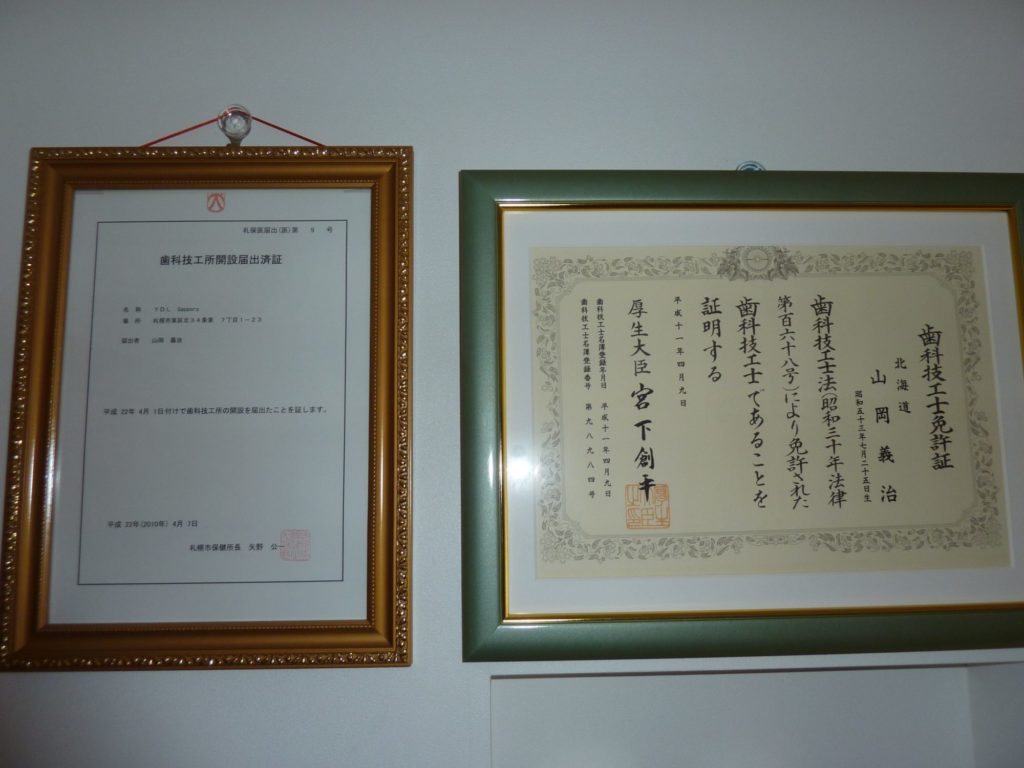 札保医届出(歯)第 9 号
歯科技工所開設届出済証
名 称 YDL Sapporo
場 所 札幌市東区北34条東 7丁目1-23
届出者 山岡 義治
平成 22年 4月 1日付けで歯科技工所の開設を届出たことを証します。
平成 22年(2010年) 4月 7日
札幌市保健所長 矢野 公一
歯科技工士免許証
北海道
山岡義治
昭和五十三年七月二十五日生
歯科技工士法(昭和三十年法律
第百六十八号)により免許された
歯科技工士であることを
証明する
平成十一年四月九日
厚生大臣 宮下創平
歯科技工士名簿登録年月日 平成十一年四月九日
歯科技工士名簿登録番号 第九八九八四号